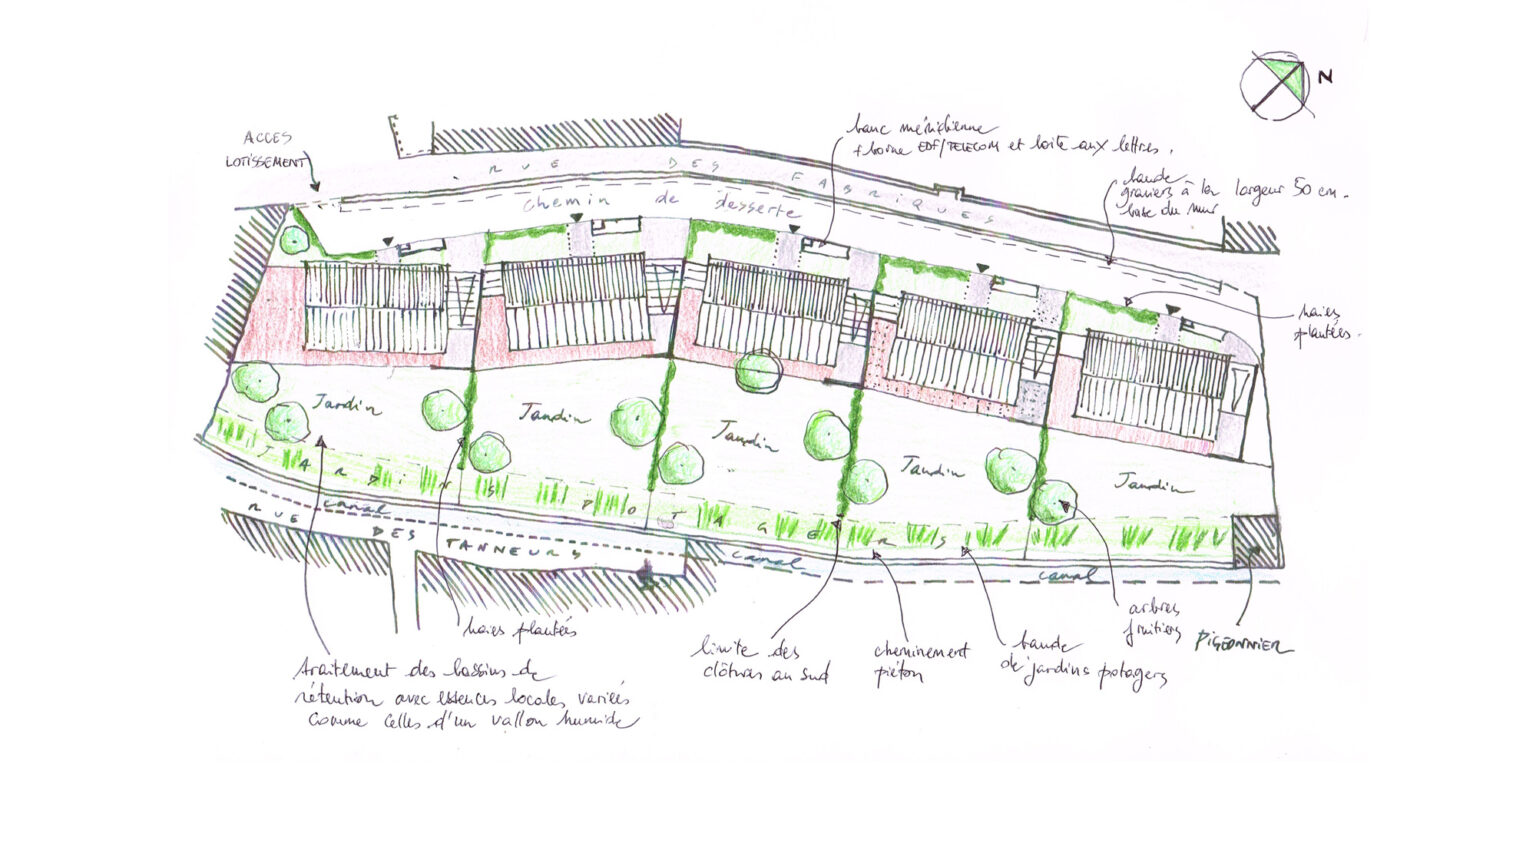 N
ACCES
LOTISSEMENT
banc méridienne
+ borne EDF/TELECOM et boite aux lettres.
bande
graviers à la largeur 50 cm.
base du mur
RUE DES FABRIQUES
chemin de desserte
haies
plantées.
Jardin
Jardin
Jardin
Jardin
Jardin
JARDINS POTAGERS
canal
RUE DES TANNEURS
canal
canal
haies plantées
traitement des bassins de
rétention avec essences locales variées
comme celles d'un vallon humide
limite des
clôtures au sud
cheminement
piéton
bande
de jardins potagers
arbres
fruitiers
PIGEONNIER